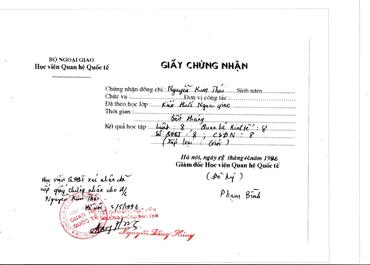 BỘ NGOẠI GIAO
Học viện Quan hệ Quốc tế
GIẤY CHỨNG NHẬN
Chứng nhận đồng chí: Nguyễn Kim Thái Sinh năm
Chức vụ: Đơn vị công tác:
Đã theo học lớp: Ngoại giao
Thời gian:
Kết quả học tập: Luật: 8; Quan hệ kinh tế: 8
CSĐN: 8
(Xếp loại: Giỏi)
Hà nội, ngày tháng năm 1986
Giám đốc Học viện Quan hệ Quốc tế
(Đã ký)
Phạm Bình
Học viện QHQT xác nhận đã
cấp giấy chứng nhận cho đ/c
Nguyễn Kim Thái
Hà nội 2/5/1996
QUAN HỆ
QUỐC TẾ
Nguyễn Đăng Hùng